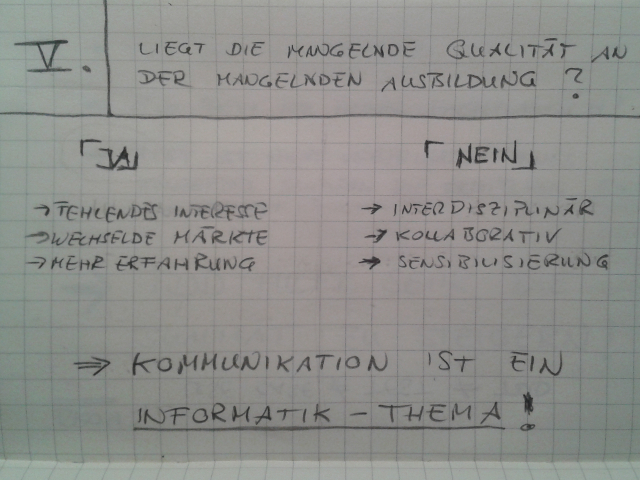 V.
LIEGT DIE MANGELNDE QUALITÄT AN
DER MANGELNDEN AUSBILDUNG ?
「JA」
「NEIN」
→ FEHLENDES INTERESSE
→ WECHSELDE MÄRKTE
→ MEHR ERFAHRUNG
→ INTERDISZIPLINÄR
→ KOLLABORATIV
→ SENSIBILISIERUNG
⇒ KOMMUNIKATION IST EIN
INFORMATIK - THEMA !